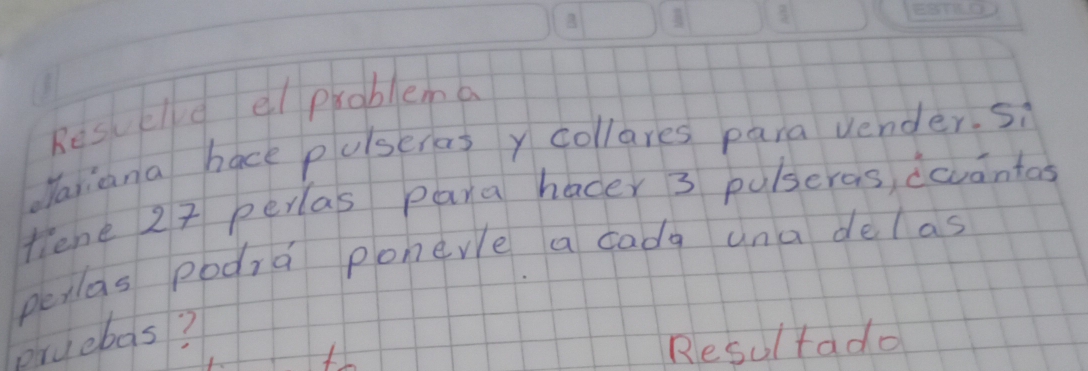 ESTILO
Resuelve el problema
Mariana hace pulseras y collares para vender. Si
tiene 27 perlas para hacer 3 pulseras, ¿cuántas
perlas podrá ponerle a cada una delas
pruebas?
Resultado